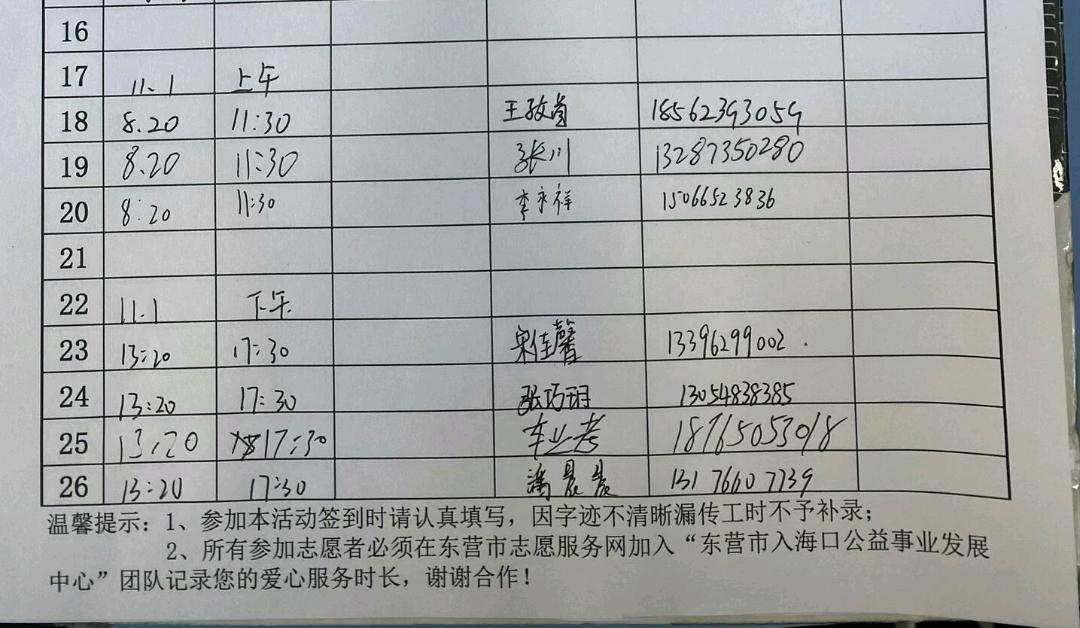 16
17 11.1 上午
18 8.20 11:30 王 18562393059
19 8.20 11:30 张川 13287350280
20 8:20 11:30 李永祥 15066523836
21
22 11.1 下午
23 13:20 17:30 宋佳馨 13396299002.
24 13:20 17:30 张巧玥 13054838385
25 13:20 17:30 车业考 18765053018
26 13:20 17:30 潘晨晨 13176607739
温馨提示：1、参加本活动签到时请认真填写，因字迹不清晰漏传工时不予补录；
2、所有参加志愿者必须在东营市志愿服务网加入“东营市入海口公益事业发展
中心”团队记录您的爱心服务时长，谢谢合作！